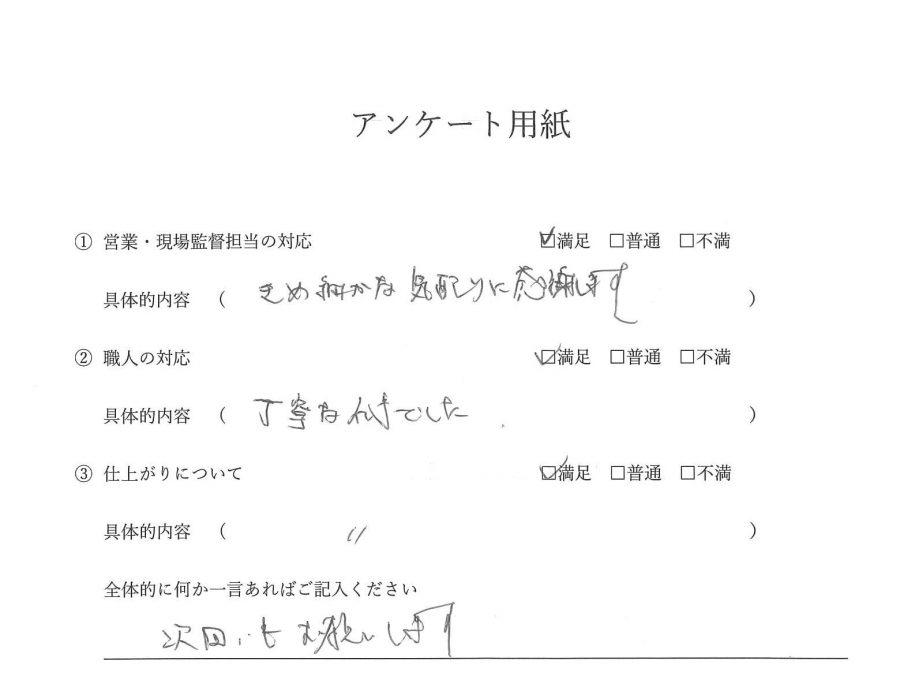 アンケート用紙
① 営業・現場監督担当の対応 ☑満足 □普通 □不満
具体的内容 （ きめ細かな気配りに感謝します ）
② 職人の対応 ☑満足 □普通 □不満
具体的内容 （ 丁寧な仕事でした ）
③ 仕上がりについて ☑満足 □普通 □不満
具体的内容 （ 〃 ）
全体的に何か一言あればご記入ください
次回もお願いします